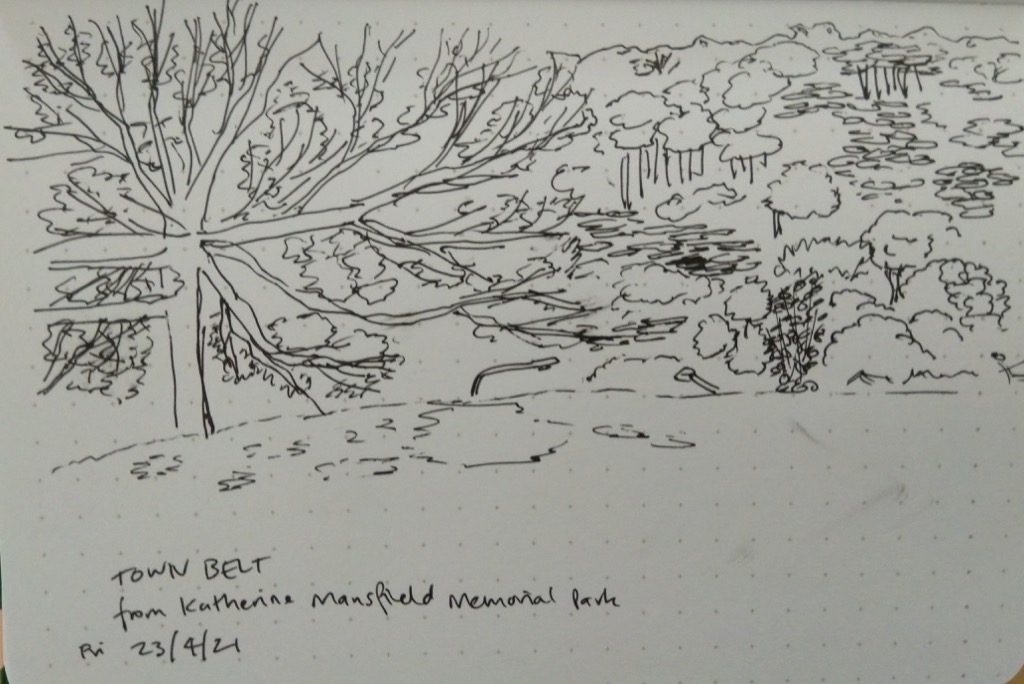 TOWN BELT
from Katherine Mansfield Memorial Park
Fri 23/4/21